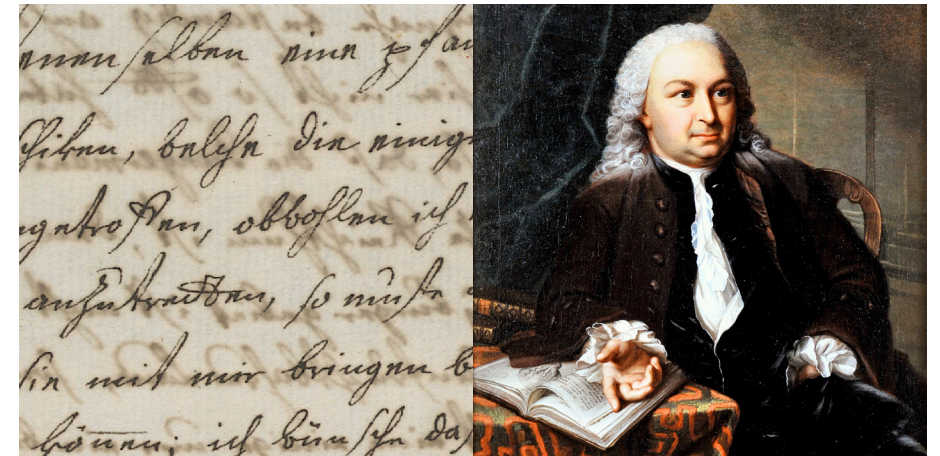 denenselben eine pfan
schiken, welche die einig
getroffen, obwohlen ich
anzutretten, so muste
sie mit mir bringen
können; ich wünsche das